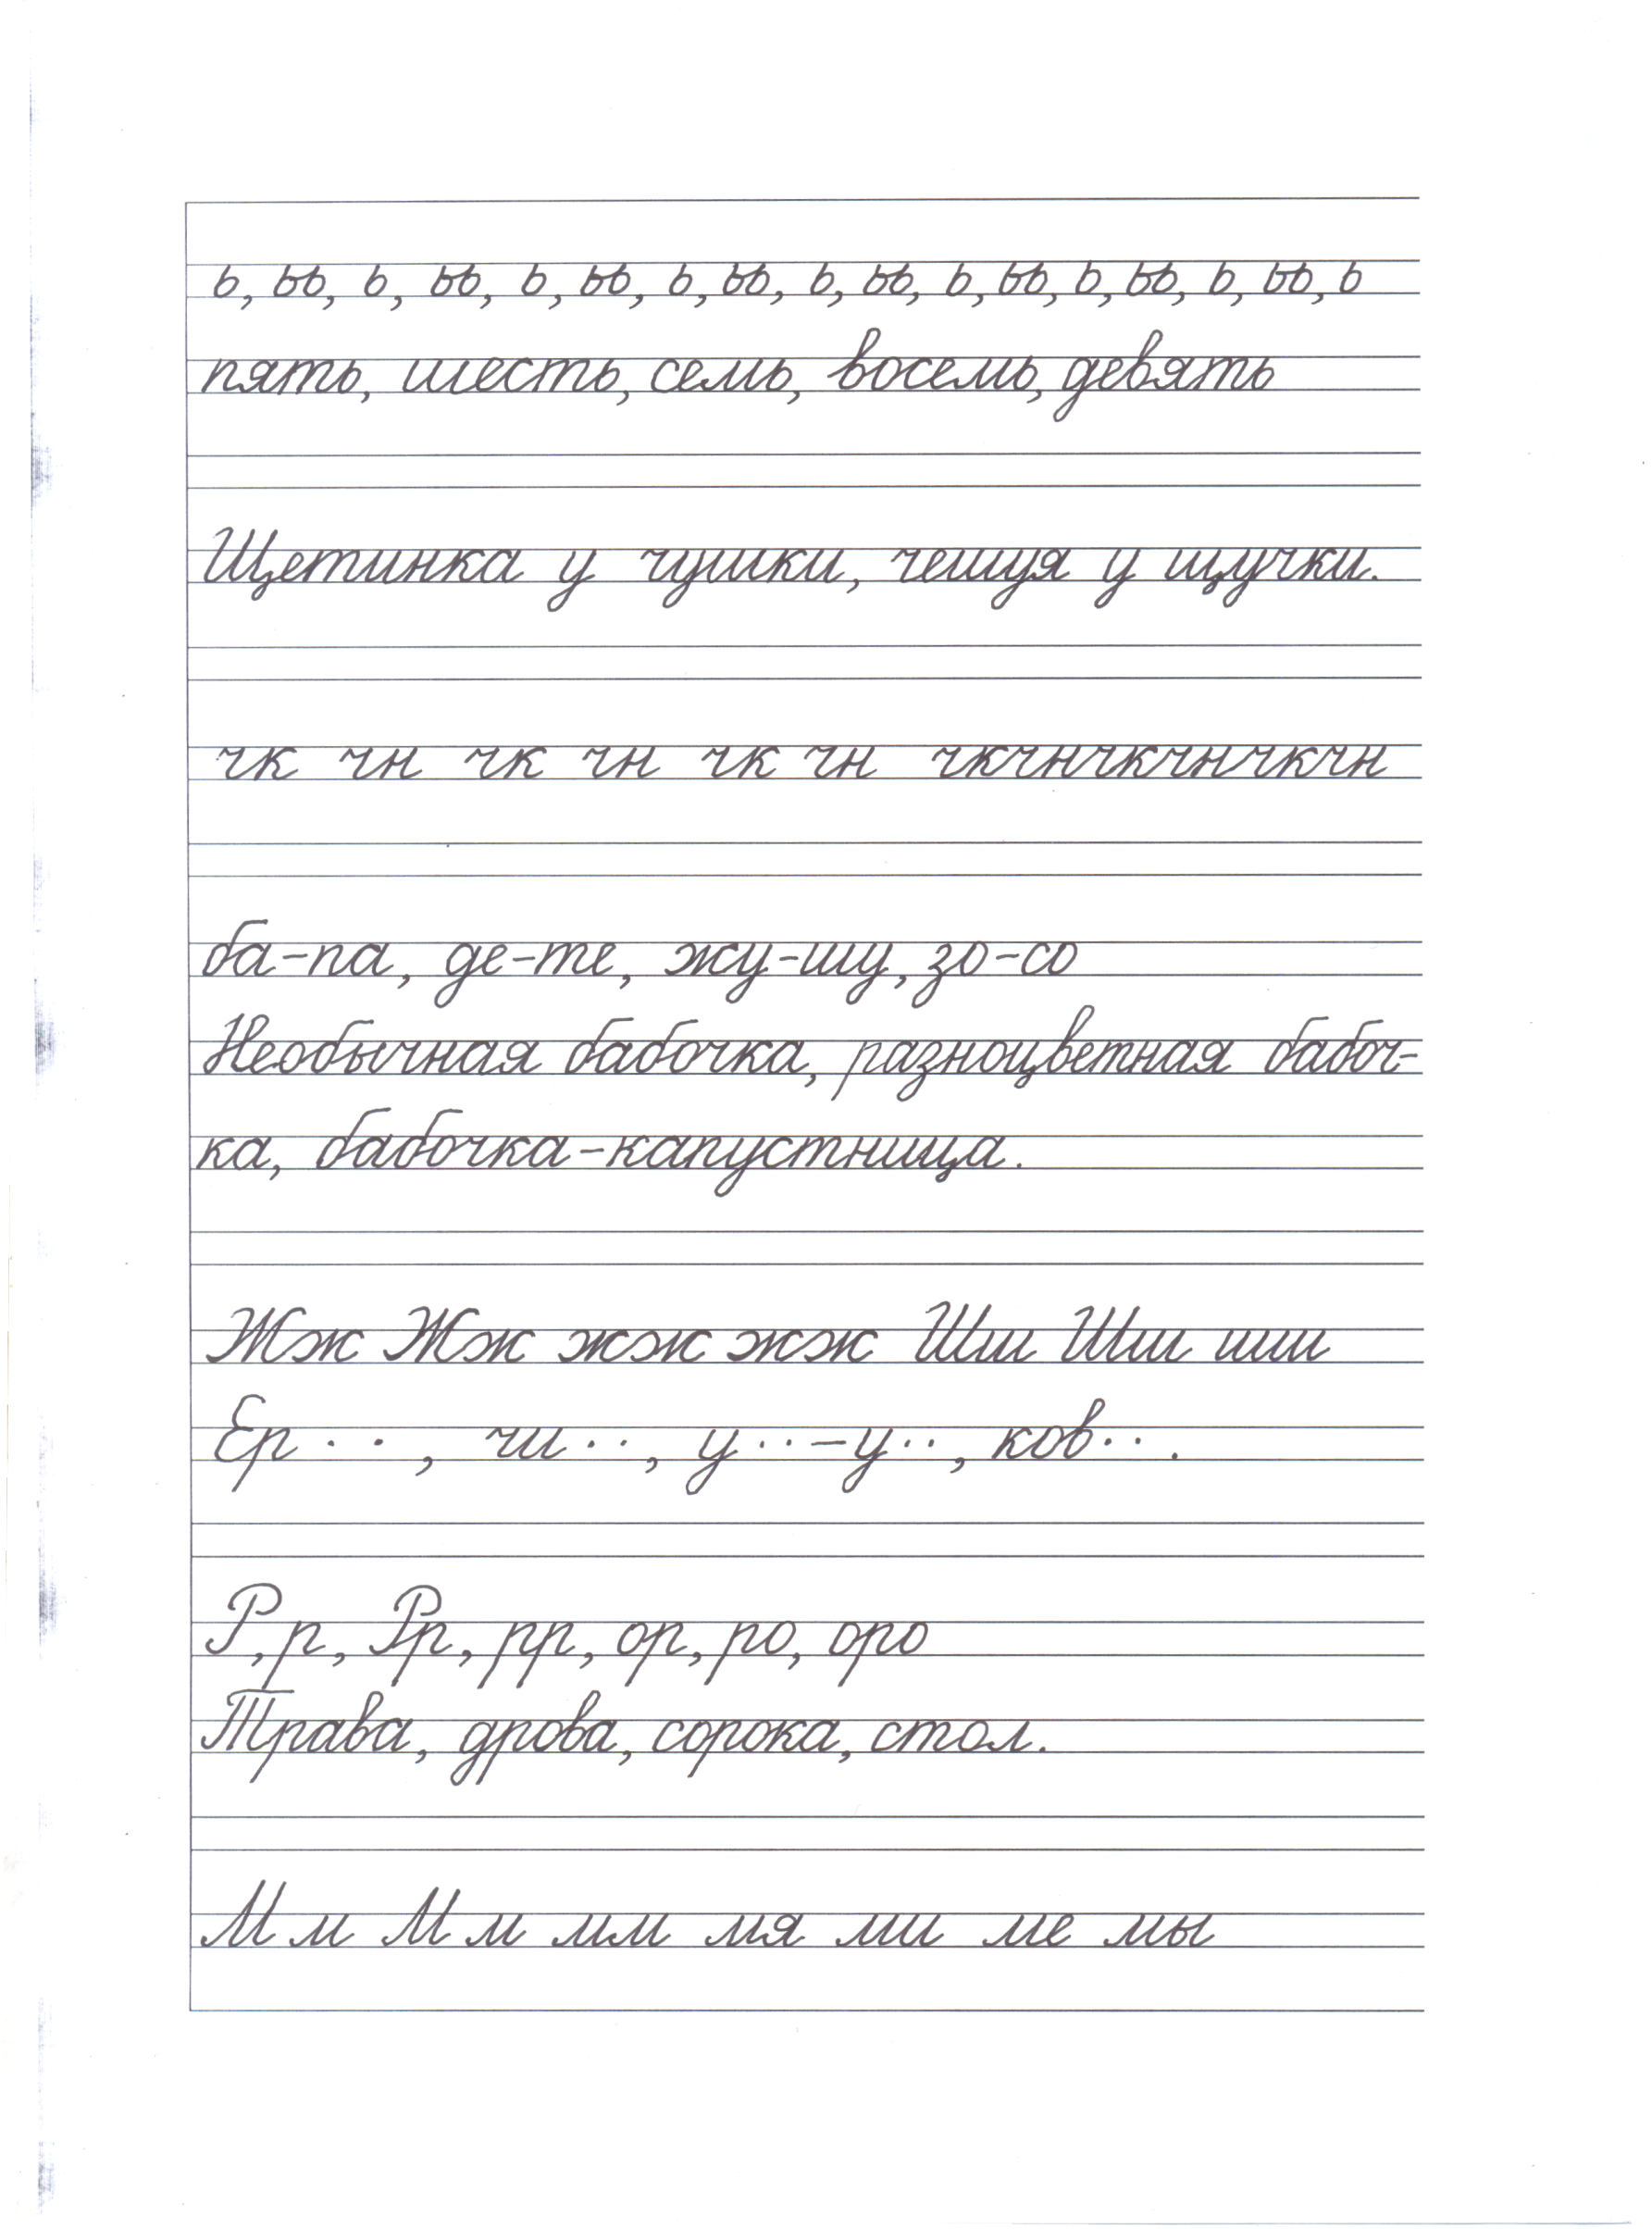 ь, ьь, ь, ьь, ь, ьь, ь, ьь, ь, ьь, ь, ьь, ь, ьь, ь, ьь, ь
пять, шесть, семь, восемь, девять
Щетинка у чушки, чешуя у щучки.
чк чн чк чн чк чн чкчнчкчнчкчн
ба-па, де-те, жу-шу, зо-со
Необычная бабочка, разноцветная бабоч-
ка, бабочка-капустница.
Жж Жж жж жж Шш Шш шш
Ер . . , чи . . , у . . – у . . , ков . . .
Р, р, Рр, рр, ор, ро, оро
Трава, дрова, сорока, стол.
М м М м мм мя ми ме мы